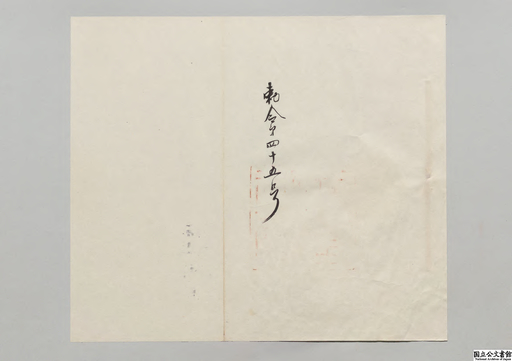 勅令第四十五号
国立公文書館
National Archives of Japan